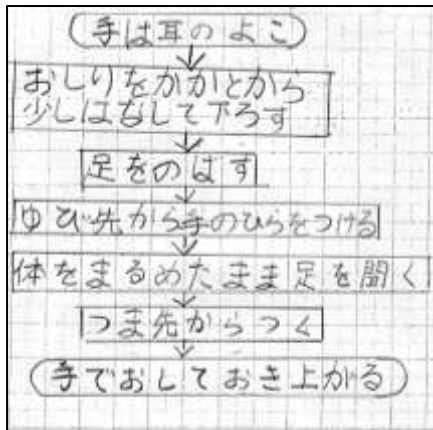 手は耳のよこ
おしりをかかとから
少しはなして下ろす
足をのばす
ゆび先から手のひらをつける
体をまるめたまま足を開く
つま先からつく
手でおしておき上がる